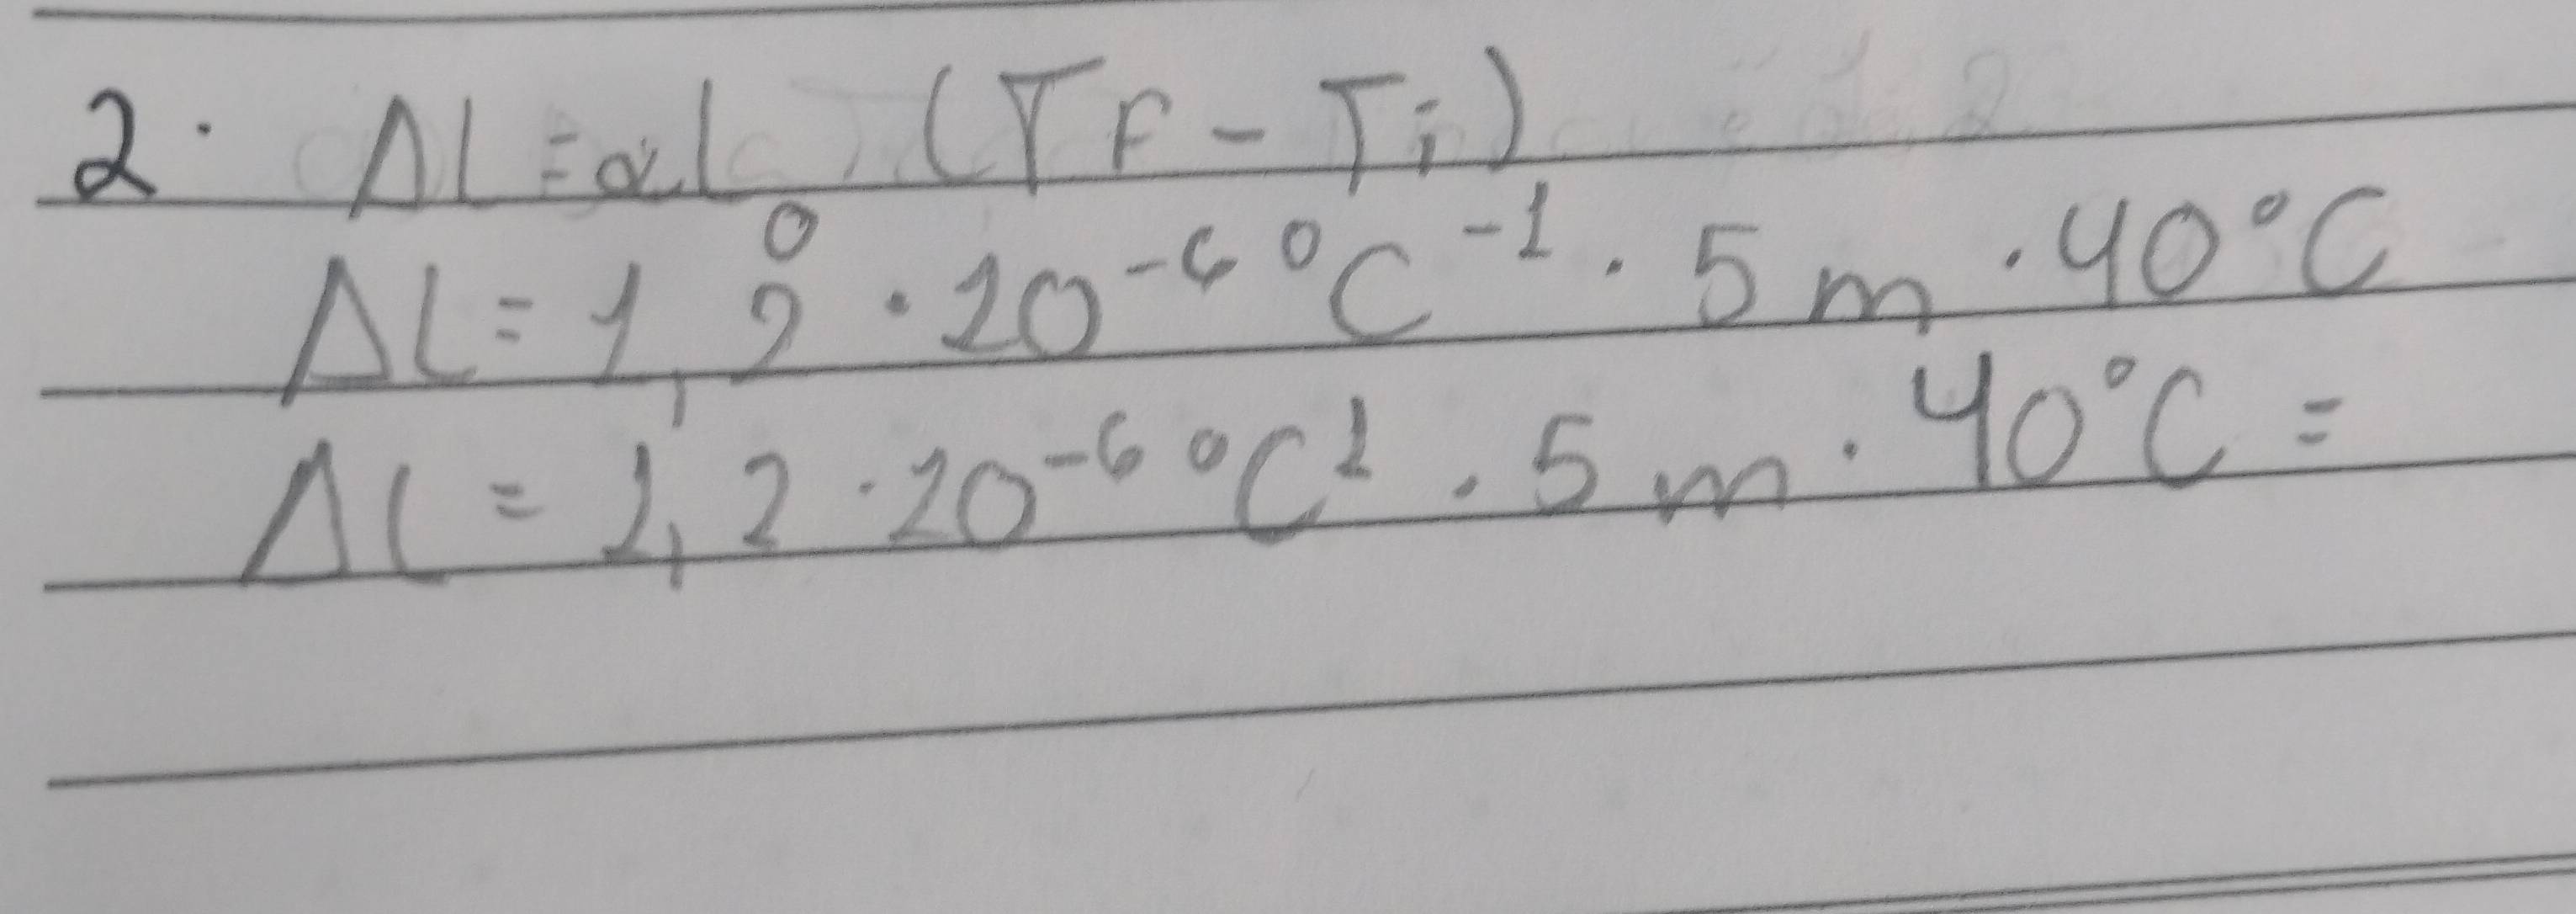 2. Δl = αl₀ (TF - Ti)
ΔL = 1,2 · 10⁻⁶ °C⁻¹ · 5 m · 40°C
ΔL = 1,2 · 10⁻⁶ °C¹ · 5 m · 40°C =